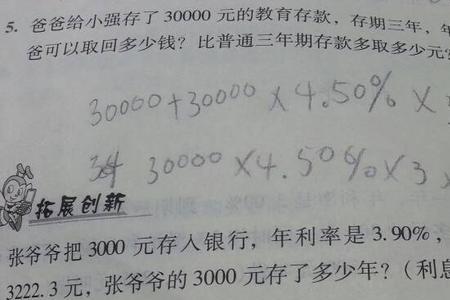 5. 爸爸给小强存了 30000 元的教育存款，存期三年，年
爸可以取回多少钱？比普通三年期存款多取多少元?
30000+30000×4.50%×
30000×4.50%×3
拓展创新
张爷爷把 3000 元存入银行，年利率是 3.90%，
3222.3 元，张爷爷的 3000 元存了多少年？（利息